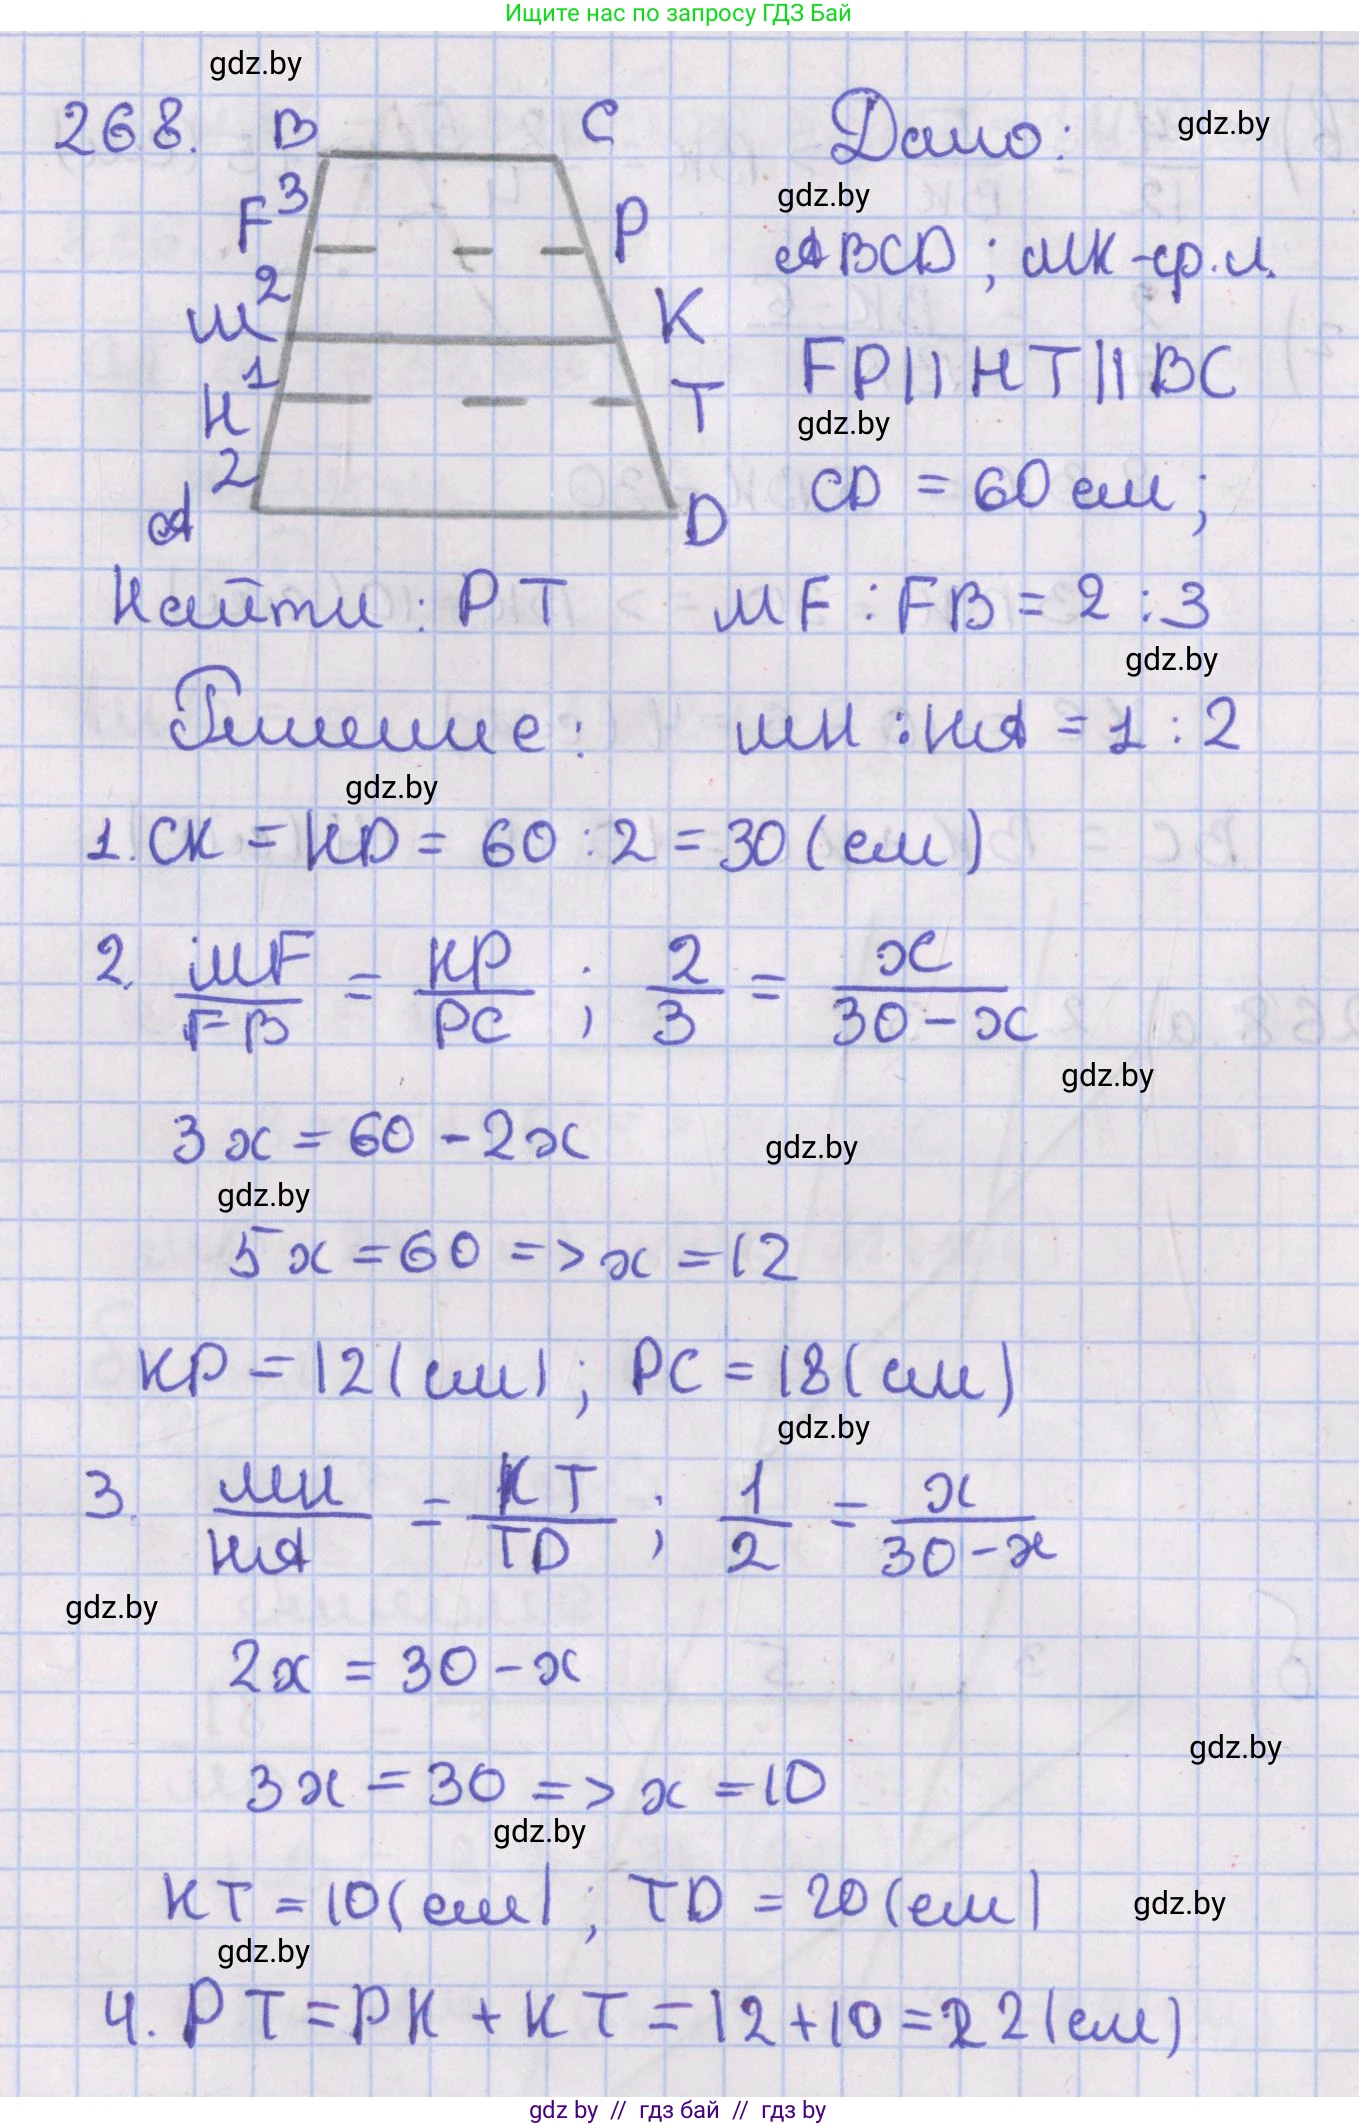 Ищите нас по запросу ГДЗ Бай
gdz.by
268. B C Дано: gdz.by
gdz.by
F 3 P ABCD ; MK - ср. л.
2
M K FP || HT || BC
1
H T gdz.by
2 CD = 60 см ;
A D
Найти : PT MF : FB = 2 : 3
gdz.by
Решение : MH : HA = 1 : 2
gdz.by
1. CK = KD = 60 : 2 = 30 (см)
2. MF/FB = KP/PC ; 2/3 = x/(30 - x)
gdz.by
3x = 60 - 2x gdz.by
gdz.by
5x = 60 => x = 12
KP = 12 (см) ; PC = 18 (см)
gdz.by
3. MH/HA = KT/TD ; 1/2 = x/(30 - x)
gdz.by
2x = 30 - x
gdz.by
3x = 30 => x = 10
gdz.by
KT = 10 (см) ; TD = 20 (см) gdz.by
gdz.by
4. PT = PK + KT = 12 + 10 = 22 (см)
gdz by // гдз бай // гдз by